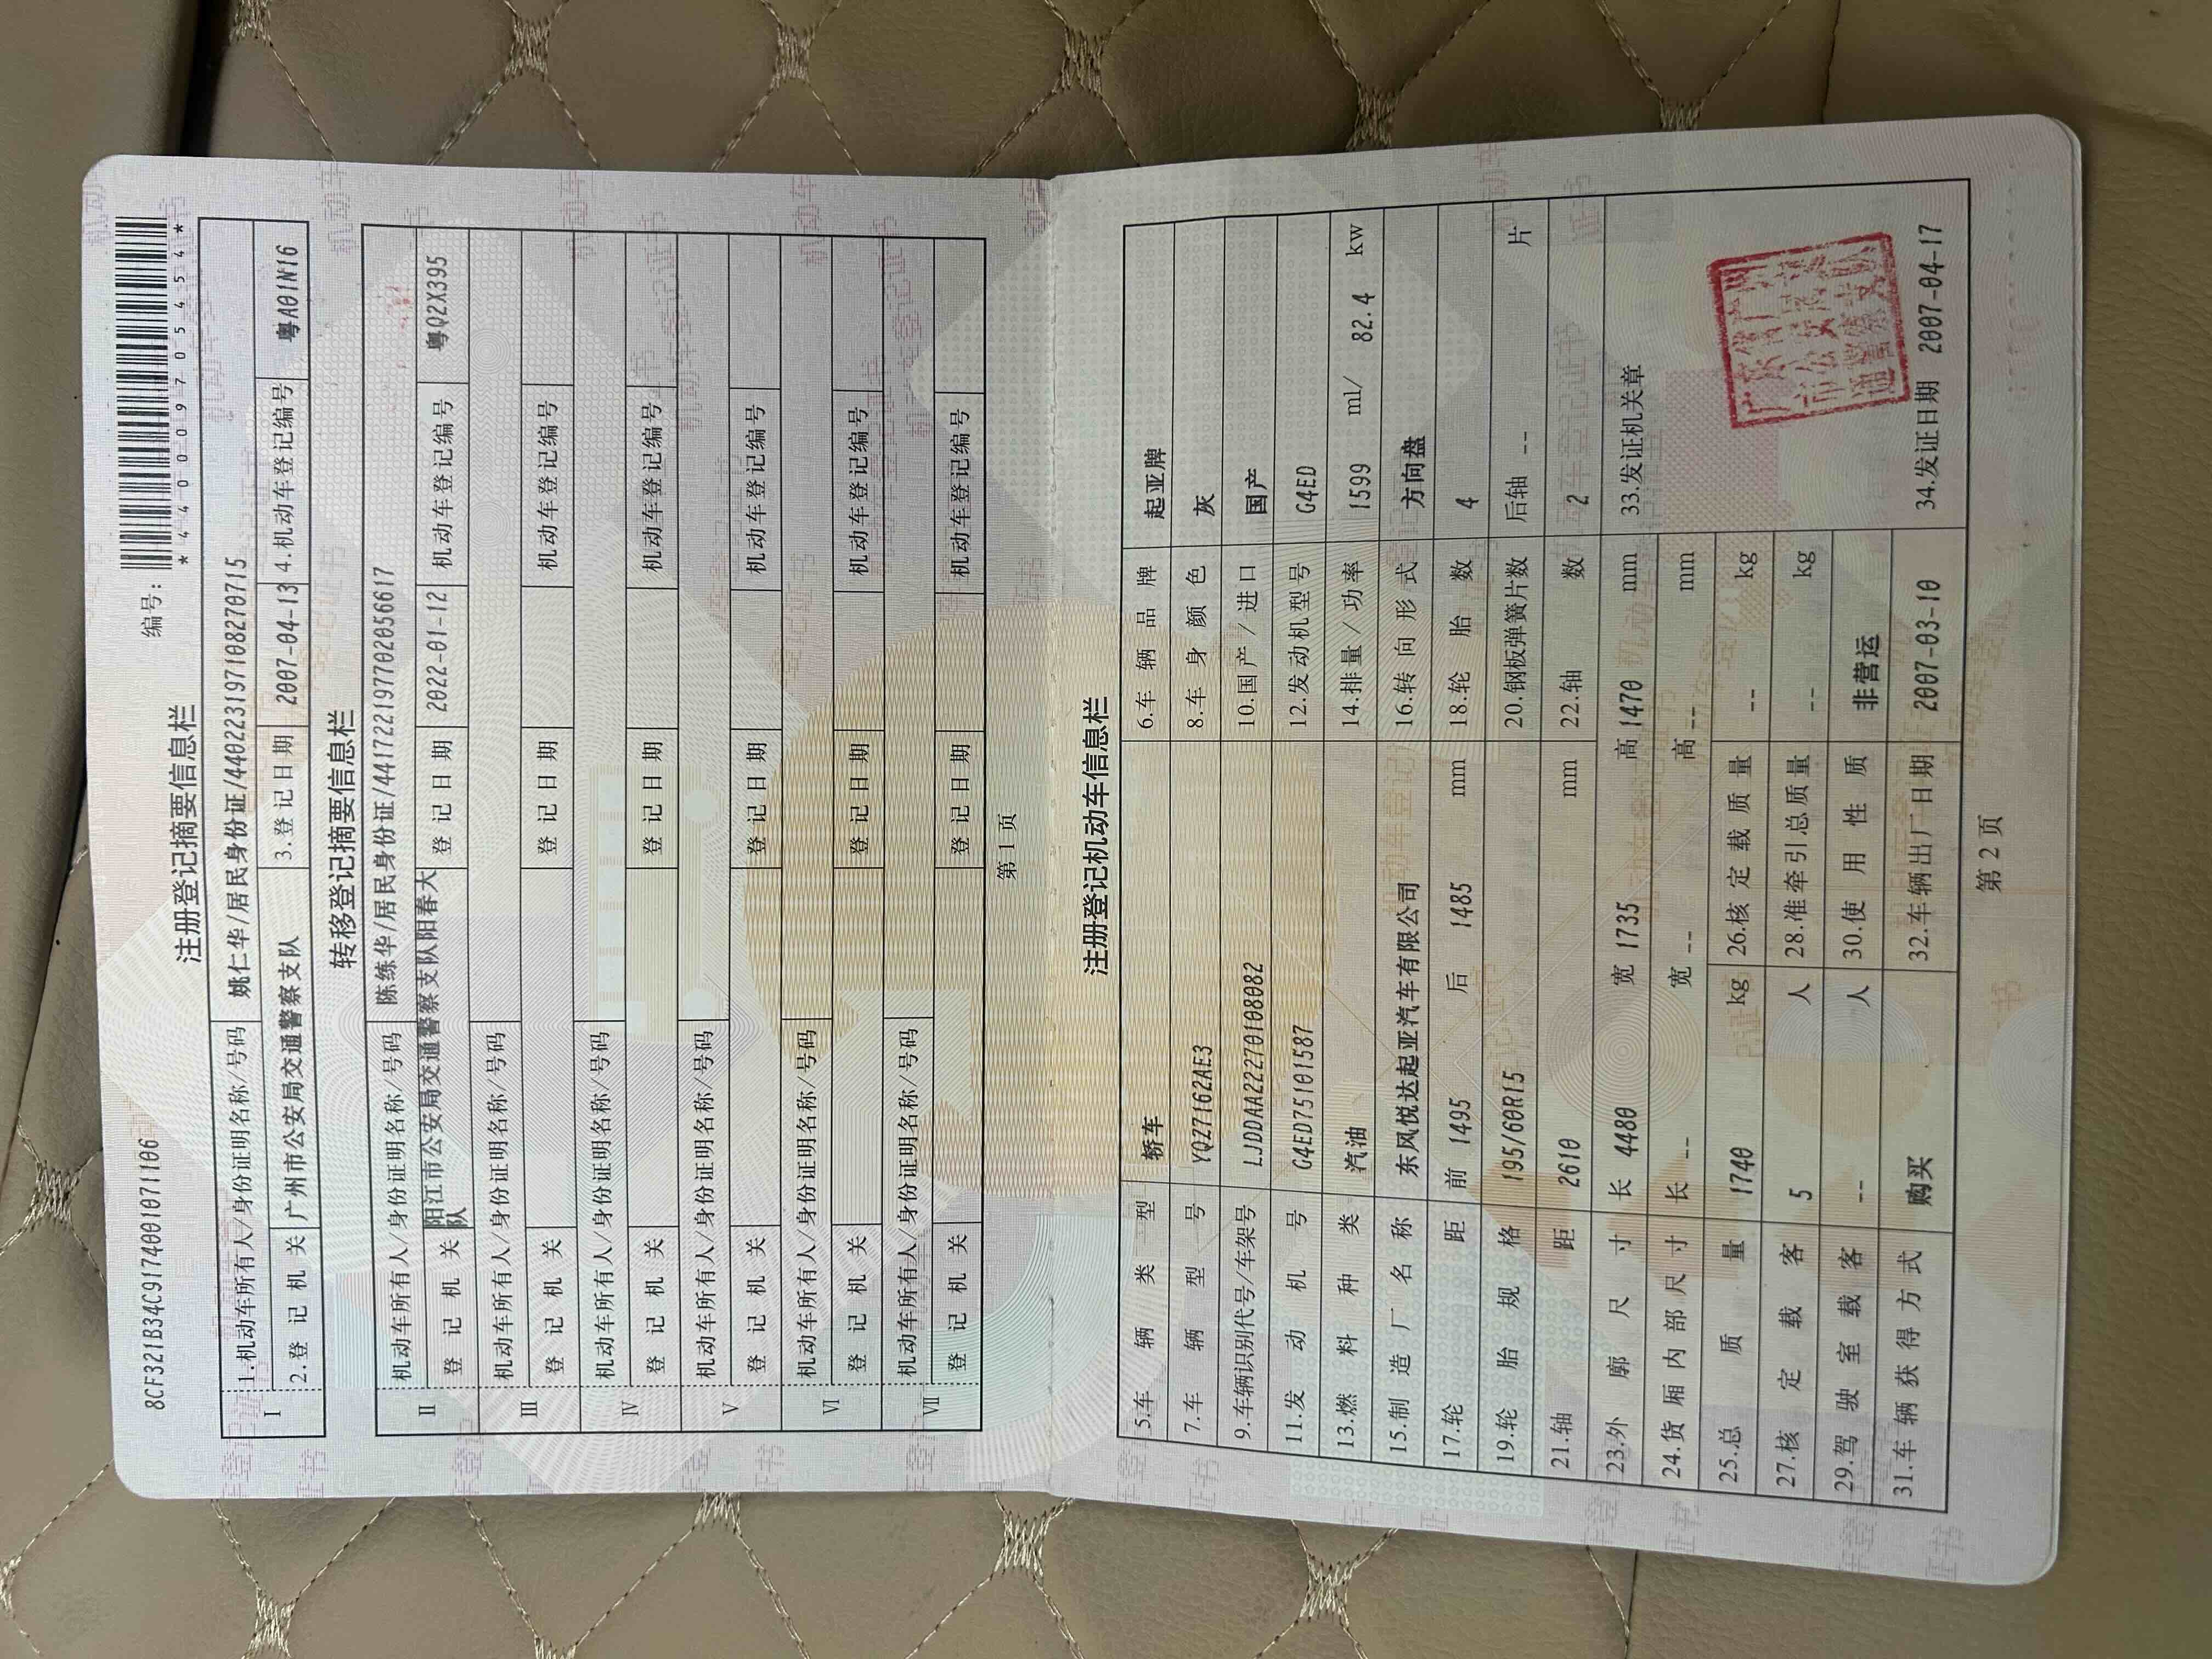 8CF321B34C9174001071106
编号:
*440009705454*
注册登记摘要信息栏
Ⅰ 1.机动车所有人/身份证明名称/号码 姚仁华/居民身份证/440223197108270715
2.登记机关 广州市公安局交通警察支队 3.登记日期 2007-04-13 4.机动车登记编号 粤A01N16
转移登记摘要信息栏
Ⅱ 机动车所有人/身份证明名称/号码 陈练华/居民身份证/441722197702056617
登记机关 阳江市公安局交通警察支队阳春大队 登记日期 2022-01-12 机动车登记编号 粤Q2X395
Ⅲ 机动车所有人/身份证明名称/号码
登记机关 登记日期 机动车登记编号
Ⅳ 机动车所有人/身份证明名称/号码
登记机关 登记日期 机动车登记编号
Ⅴ 机动车所有人/身份证明名称/号码
登记机关 登记日期 机动车登记编号
Ⅵ 机动车所有人/身份证明名称/号码
登记机关 登记日期 机动车登记编号
Ⅶ 机动车所有人/身份证明名称/号码
登记机关 登记日期 机动车登记编号
第1页
注册登记机动车信息栏
5.车辆类型 轿车 6.车辆品牌 起亚牌
7.车辆型号 YQZ7162AE3 8.车身颜色 灰
9.车辆识别代号/车架号 LJDDAA22270108082 10.国产/进口 国产
11.发动机号 G4ED75101587 12.发动机型号 G4ED
13.燃料种类 汽油 14.排量/功率 1599 ml/ 82.4 kw
15.制造厂名称 东风悦达起亚汽车有限公司 16.转向形式 方向盘
17.轮距 前 1495 后 1485 mm 18.轮胎数 4
19.轮胎规格 195/60R15 20.钢板弹簧片数 后轴 -- 片
21.轴距 2610 mm 22.轴数 2
23.外廓尺寸 长 4480 宽 1735 高 1470 mm 33.发证机关章
24.货厢内部尺寸 长 -- 宽 -- 高 -- mm
25.总质量 1740 kg 26.核定载质量 -- kg
27.核定载客 5 人 28.准牵引总质量 -- kg
29.驾驶室载客 -- 人 30.使用性质 非营运
31.车辆获得方式 购买 32.车辆出厂日期 2007-03-10 34.发证日期 2007-04-17
第2页